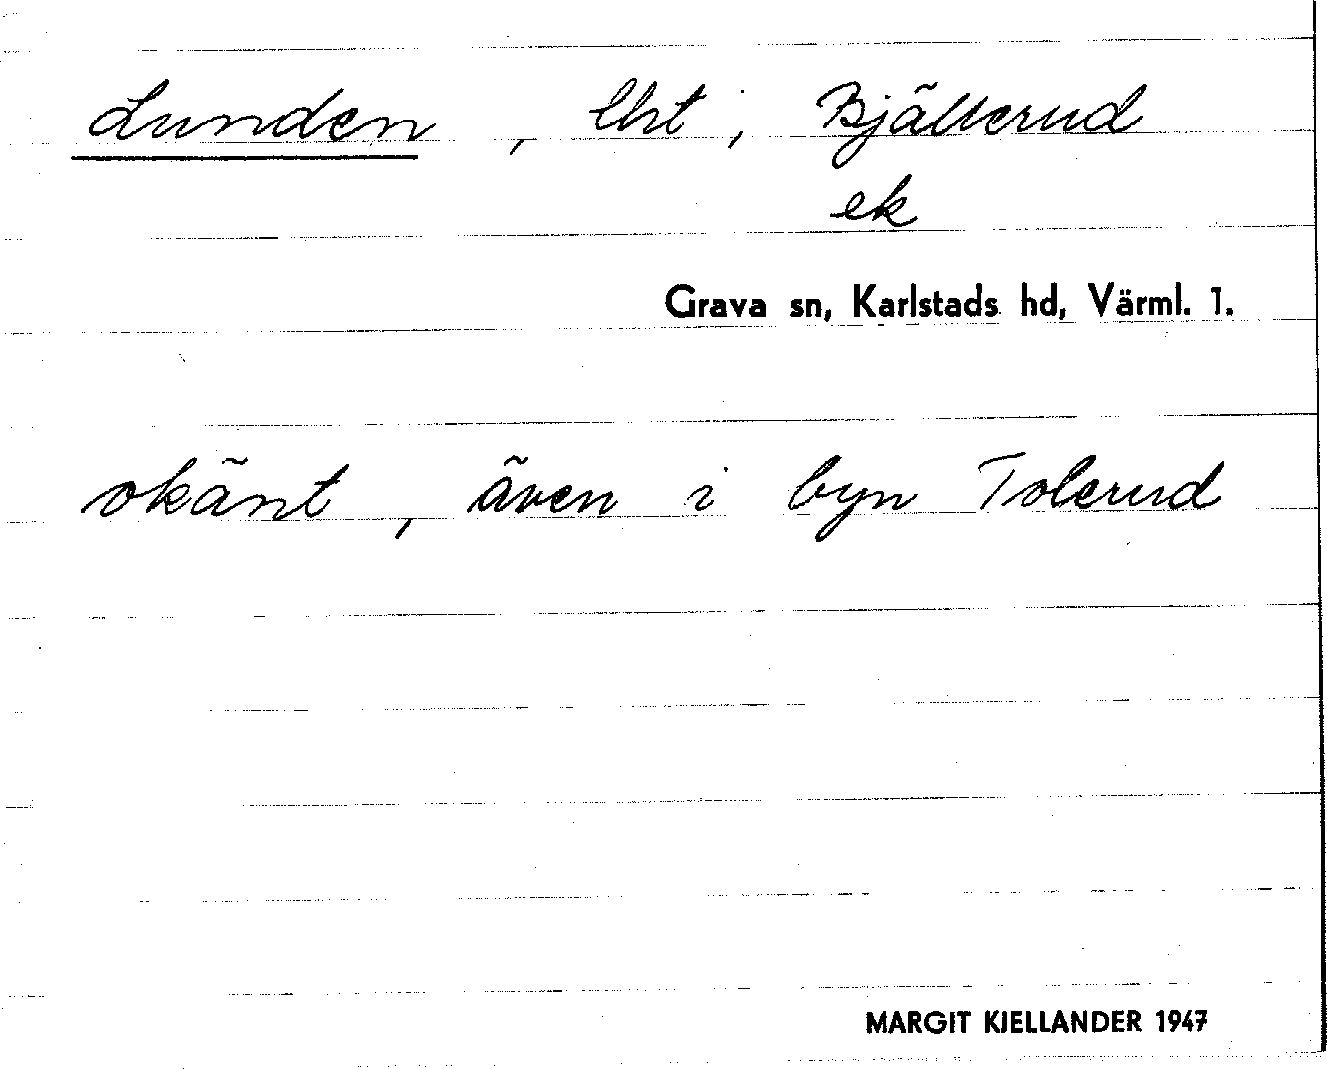 Lunden, lht, Bjälterud
ek
Grava sn, Karlstads hd, Värml. 1.
okänt, även i byn Tolerud
MARGIT KJELLANDER 1947